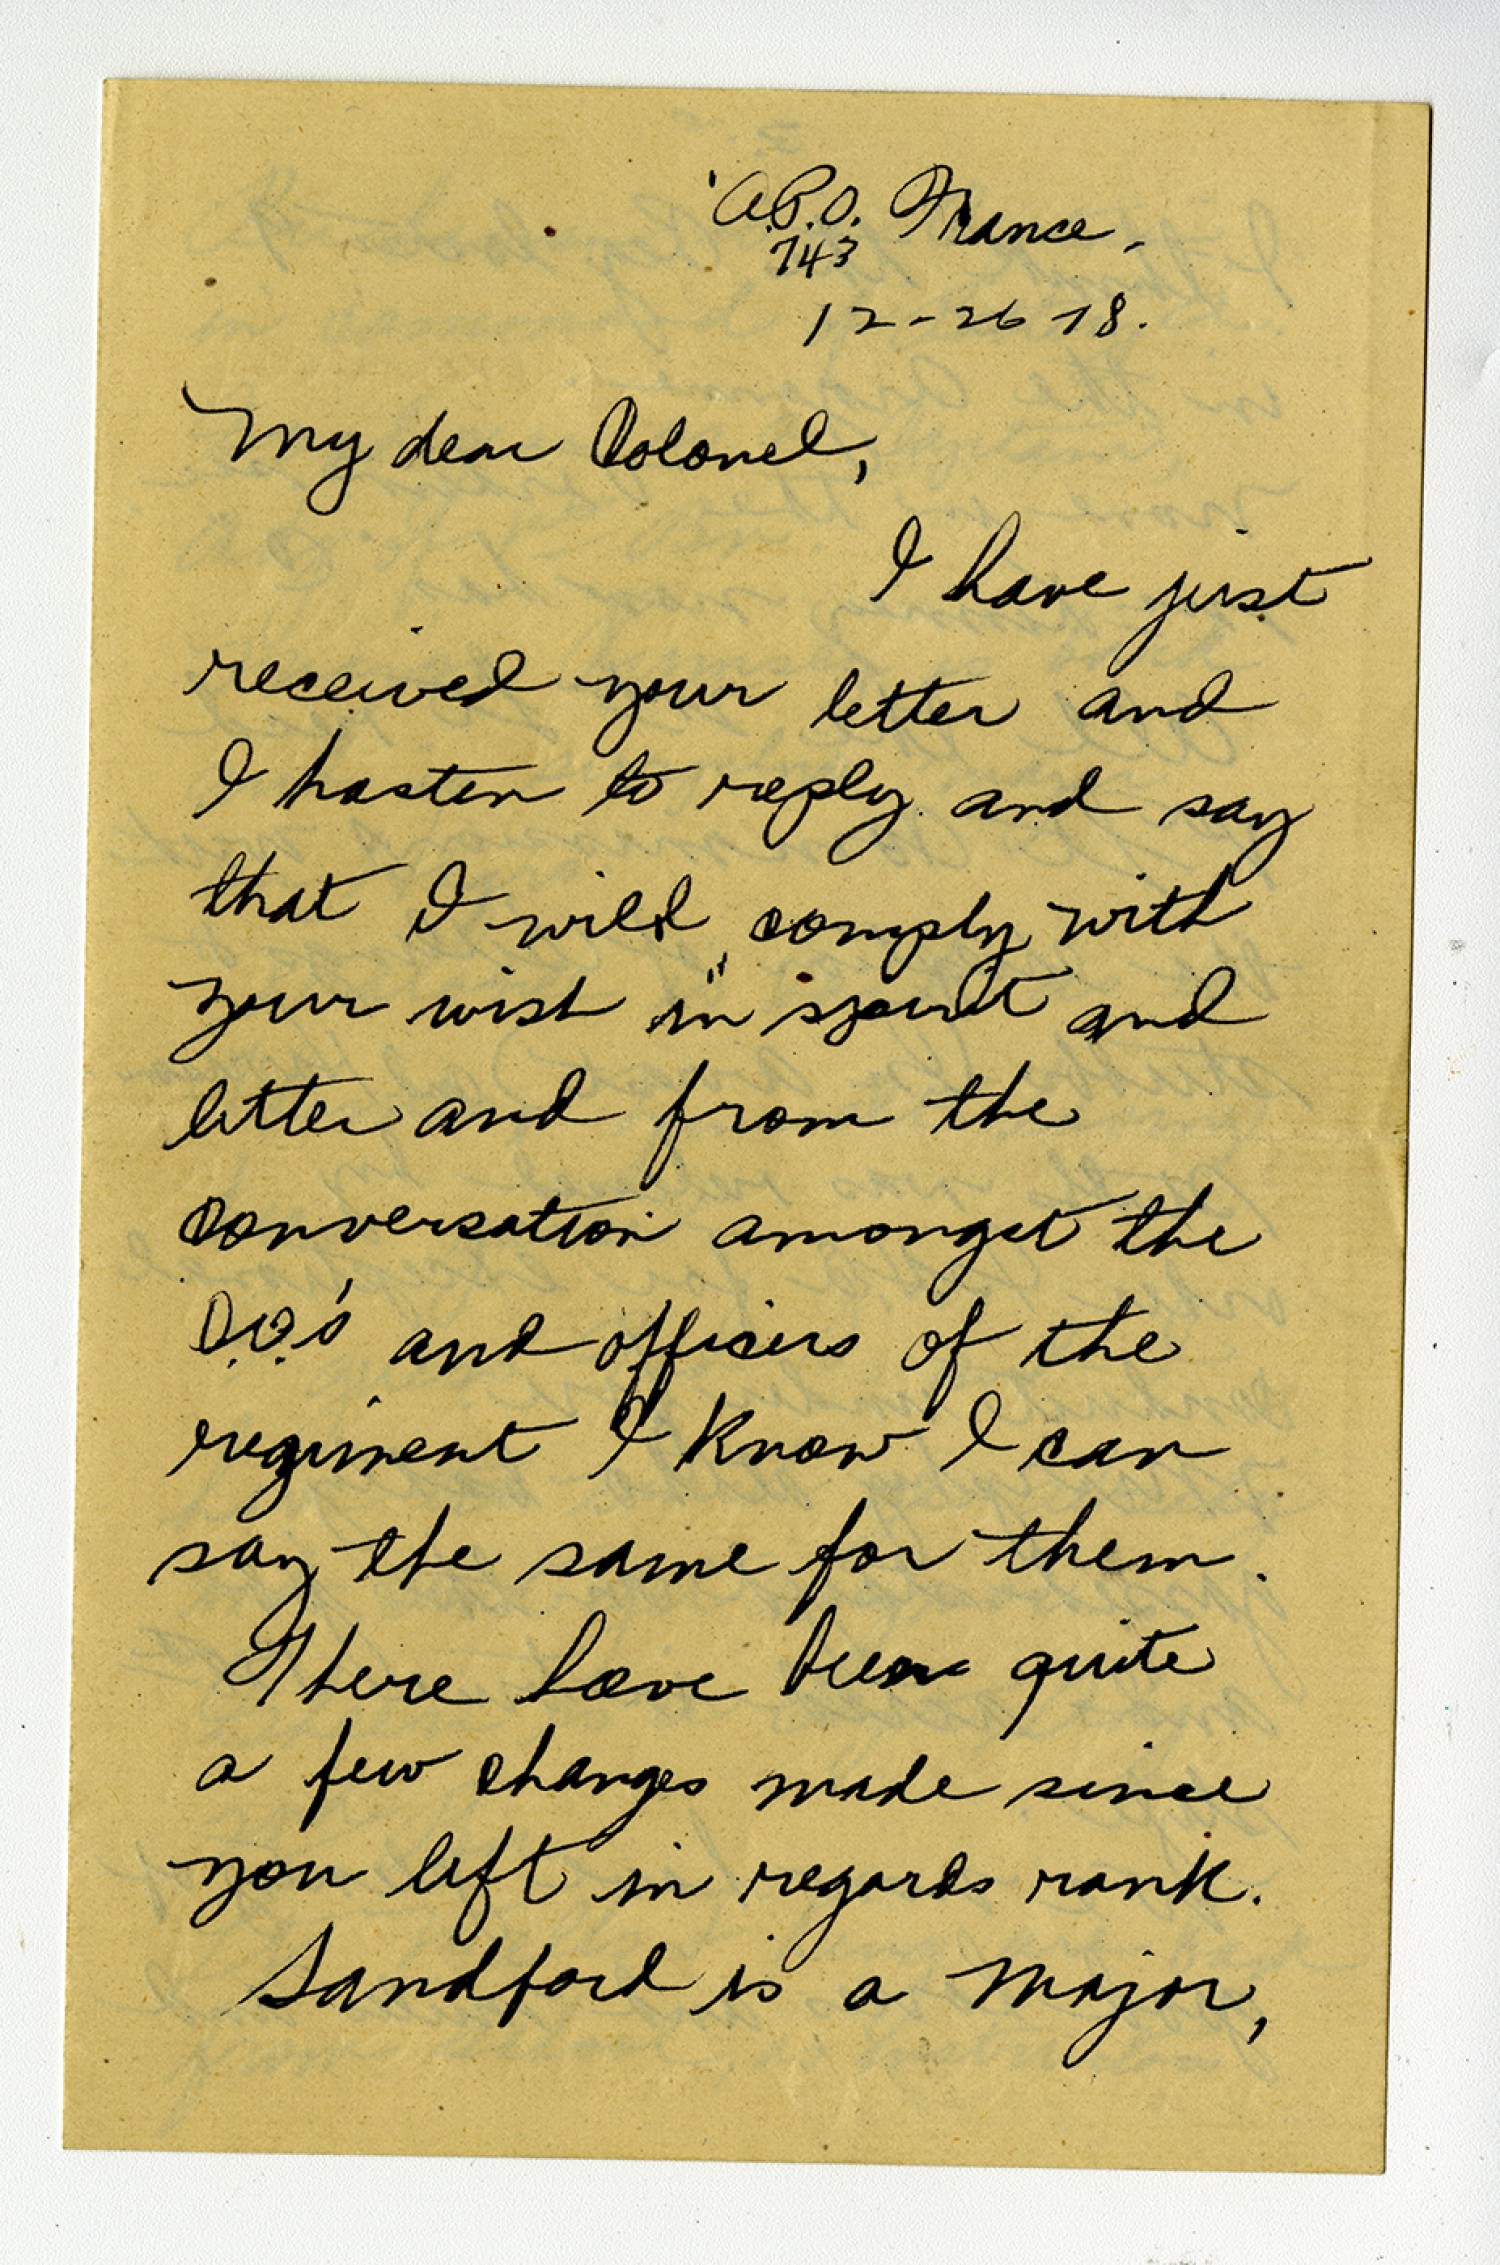 A.P.O. France.
743
12-26 18.
My dear Colonel,
I have just
received your letter and
I hasten to reply and say
that I will comply with
your wish "in spirit and
letter and from the
conversation amongst the
C.O.'s and officers of the
regiment I know I can
say the same for them.
There have been quite
a few changes made since
you left in regards rank.
Sandford is a Major,